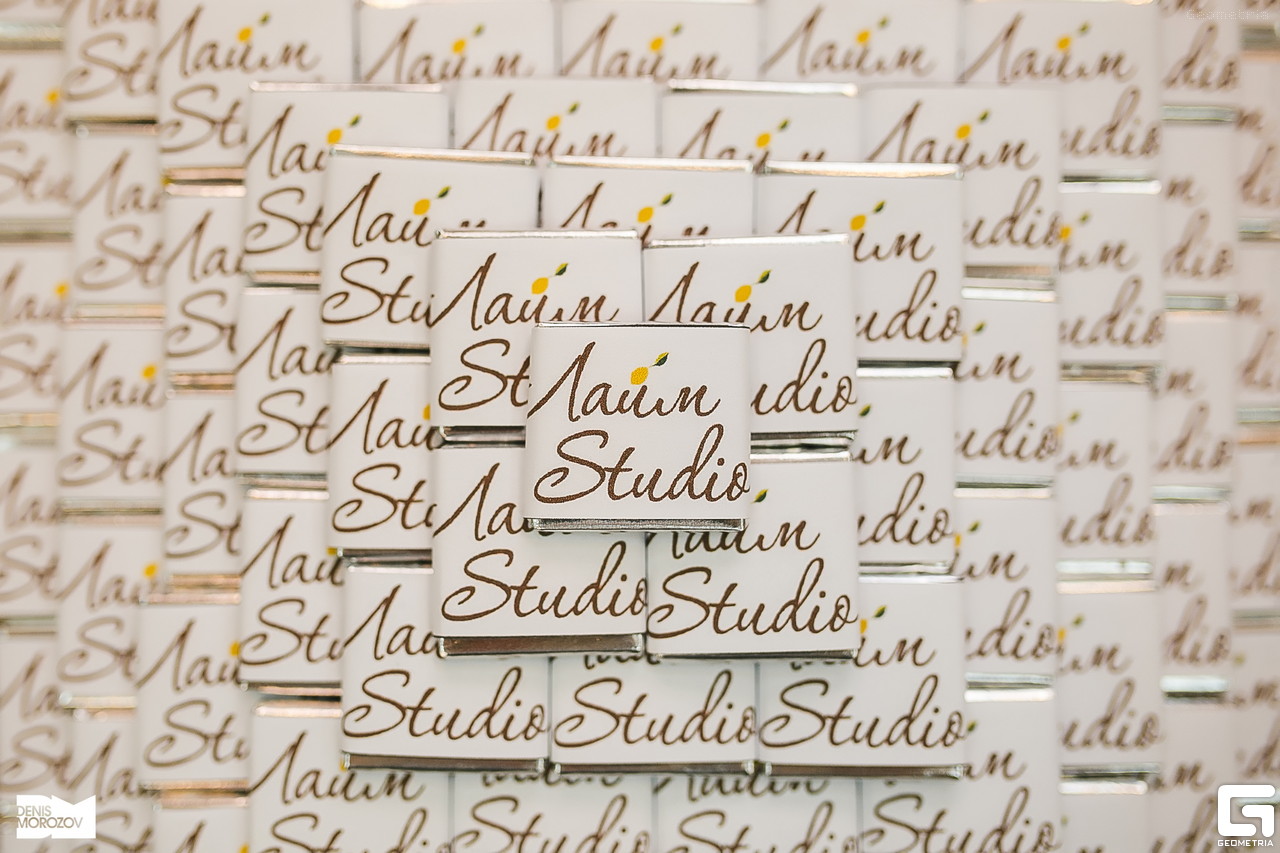 Лайм
Studio
DENIS
MOROZOV
GEOMETRIA